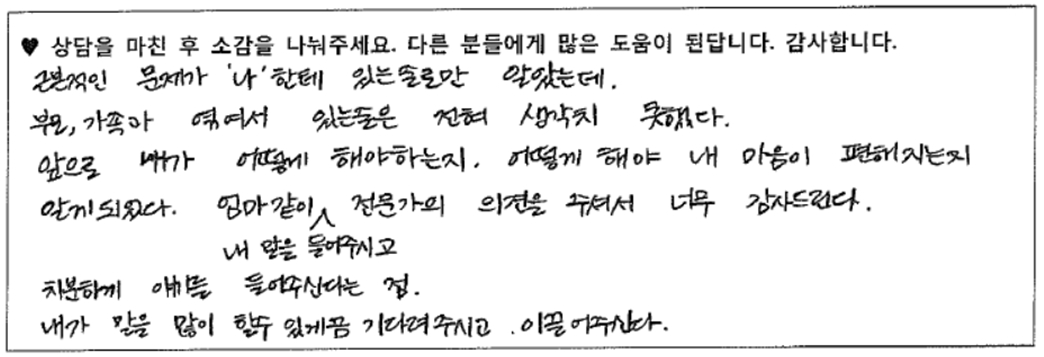 ♥ 상담을 마친 후 소감을 나눠주세요. 다른 분들에게 많은 도움이 된답니다. 감사합니다.
근본적인 문제가 '나'한테 있는줄로만 알았는데.
부모, 가족과 엮여서 있는줄은 전혀 생각치 못했다.
앞으로 내가 어떻게 해야하는지. 어떻게 해야 내 마음이 편해지는지
알게되었다. 엄마같이 전문가의 의견을 주셔서 너무 감사드린다.
내 말을 들어주시고
차분하게 얘기를 들어주신다는 점.
내가 말을 많이 할수 있게끔 기다려주시고. 이끌어주신다.